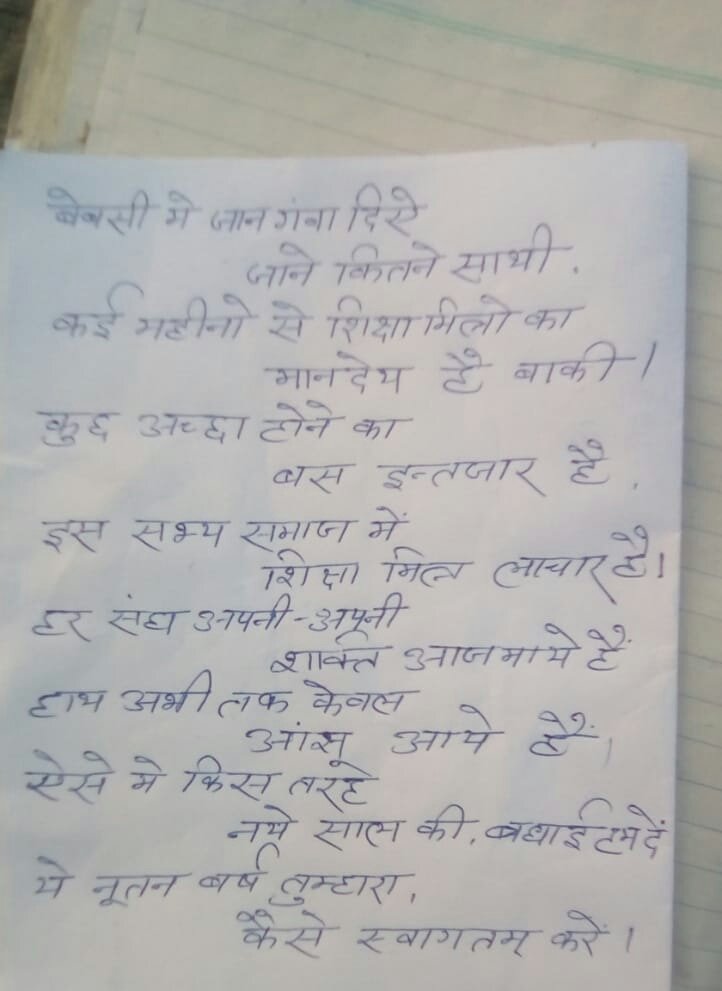 बेबसी मे जान गंवा दिऐ
जाने कितने साथी .
कई महीनो से शिक्षा मित्रो का
मानदेय है बाकी ।
कुछ अच्छा होने का
बस इन्तजार है .
इस सभ्य समाज में
शिक्षा मित्र लाचार है।
हर संघ अपनी-अपनी
शक्ति आजमाये हैं
हाथ अभी तक केवल
आंसू आये हैं।
ऐसे मे किस तरहे
नये साल की, बधाई हम दें
ये नूतन बर्ष तुम्हारा,
कैसे स्वागतम् करें ।